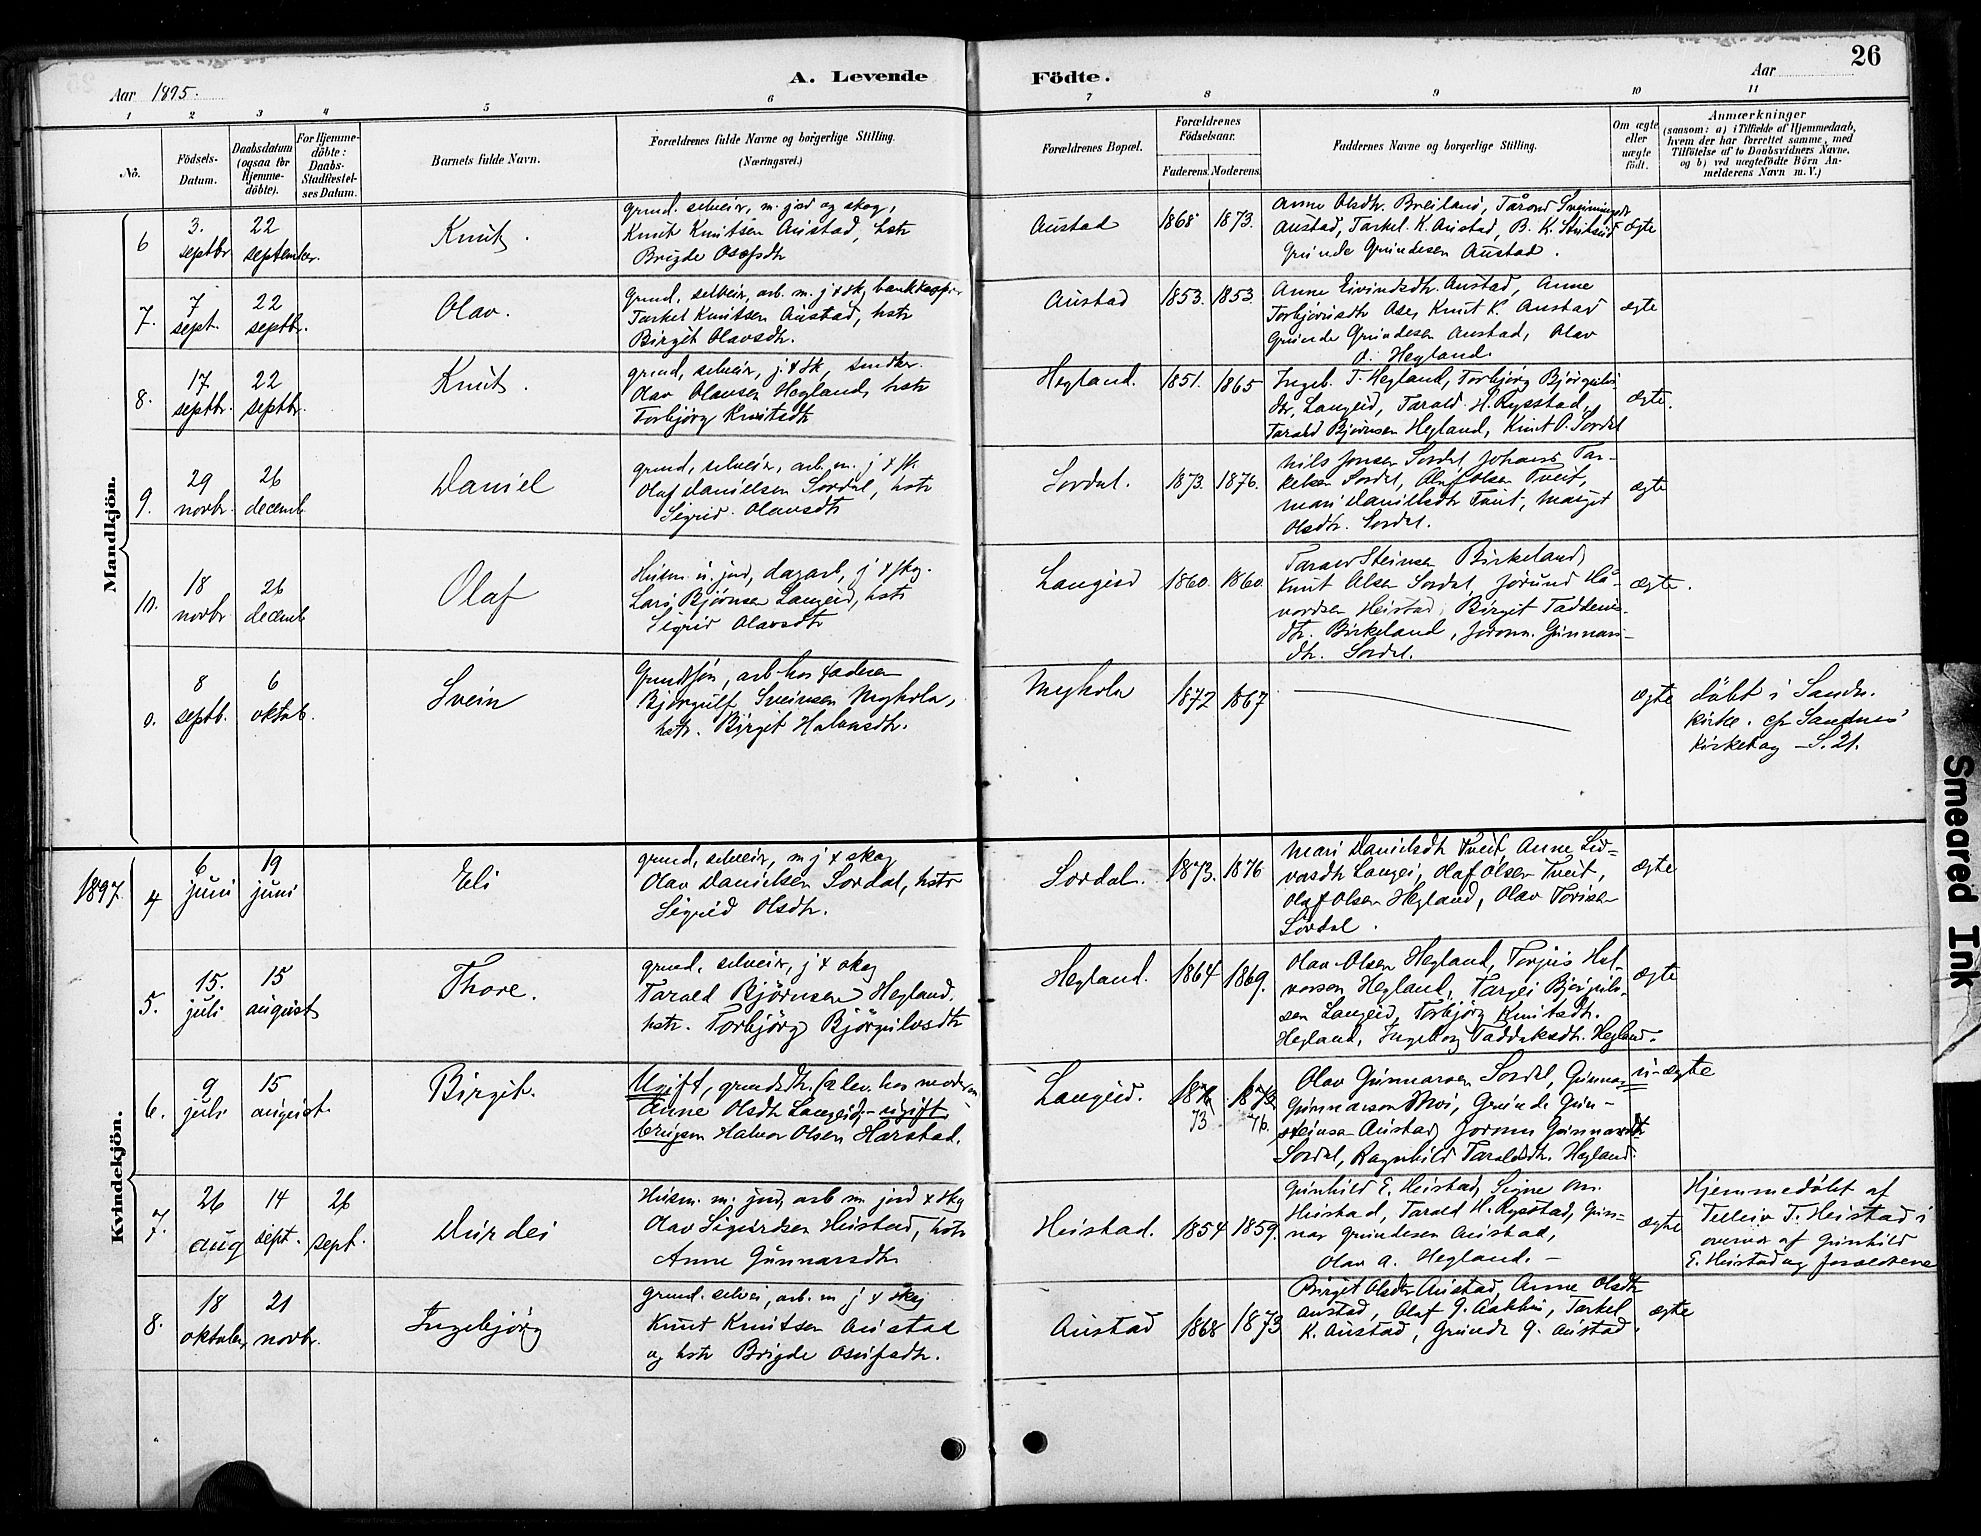 26
A. Levende
Födte.
Aar 1895.
Aar
1
2
3
4
5
6
7
8
9
10
11
No.
Födsels-
Datum.
Daabsdatum
(ogsaa for
Hjemme-
döbte).
For Hjemme-
döbte:
Daabs-
Stadfæstel-
ses Datum.
Barnets fulde Navn.
Forældrenes fulde Navne og borgerlige Stilling.
(Næringsvei.)
Forældrenes Bopæl.
Forældrenes
Födselsaar.
Faderens.
Moderens.
Faddernes Navne og borgerlige Stilling.
Om ægte
eller
uægte
födt.
Anmærkninger
(saasom: a) i Tilfælde af Hjemmedaab,
hvem der har forrettet samme, med
Tilföielse af to Daabsvidners Navne,
og b) ved uægtefödte Börn An-
melderens Navn m. V.)
Mandkjön.
6
3.
septbr
22
september.
Knut.
grund. selveier, m. jord og skog,
Knut Knutsen Austad, hstr
Brigde Osofsdtr
Austad
1868
1873.
Anne Olsdtr. Breiland, Tårand
Austad, Tarkel K. Austad, B. K.
Grunde Grundesen Austad.
ægte
7.
7
sept.
22
septbr.
Olav.
Grund, selveier, arb. m. j & sk,
Tarkel Knutsen Austad, hstr
Birgit Olavsdtr.
Austad
1853.
1853.
Anne Eivindsdtr. Austad, Anne
Torbjørnsdtr Ose, Knut K. Austad
Grunde Grundesen Austad, Olav
O. Hegland.
ægte
8.
17
septbr.
22
septbr.
Knut.
grund, selveier, j & sk, snedker.
Olav Olausen Hegland, hstr
Torbjörg Knutsdtr
Hegland.
1851.
1865
Ingeb. T. Hegland, Torbjörg Bjørgulvs-
dtr, Langeid, Tarald H. Rysstad,
Tarald Bjørnsen Hegland, Knut O. Sordal
ægte.
9.
29
novbr.
26
decemb
Daniel
grund, selveier, arb. m. j & sk.
Olaf Danielsen Sordal, hstr
Sigrid Olavsdtr
Sordal.
1873.
1876.
Nils Jonsen Sordal, Johans Tar-
kelsen Sordal, Oluf Olsen Tveit,
Mari Danielsdtr Tveit, Margit
Olsdtr. Sordal.
ægte
10.
18
novbr
26
decemb
Olaf
Husm. u. jord, dagarb, j & skog.
Lars Bjørnsen Langeid, hstr
Sigrid Olavsdtr
Langeid
1860.
1860.
Tarald Steinsen Birkeland,
Knut Olsen Sordal, Jørund Hå-
vordsen Heistad, Birgit Taddeus-
dtr. Birkeland, Joronn. Gunnars-
dtr. Sordal.
ægte.
0.
8
septb.
6
oktob.
Svein
Grundsøn, arb. hos faderen
Bjørgulf Sveinsen Myhola,
hstr. Birgit Halvorsdtr.
Myhola
1872
1867
ægte
döbt i Sandn.
kirke. cfr Sandnes
Kirkebog – S. 21.
1897
Kvindekjön.
4
6
juni
19
juni
Eli
grund, selveier, m j & skog
Olav Danielsen Sordal, hstr
Sigrid Olsdtr.
Sordal.
1873.
1876
Mari Danielsdtr Tveit, Anne Sid-
vorsdtr Langei, Olaf Olsen Tveit,
Olaf Olsen Hegland, Olav Torisen
Sordal.
ægte
5.
15.
juli
15
august
Thore.
grund, selveier, j & skog
Tarald Björnsen Hegland,
hstr. Torbjörg Björgulvsdtr
Hegland.
1864
1869.
Olav Olsen Hegland, Torjus Hal-
vorsen Hegland, Targei Bjørgulv-
sen Langeid, Torbjörg Knutsdtr.
Hegland, Ingeborg Taddeksdtr. Hegland.
ægte
6.
9
juli
15
august.
Birgit.
Ugift, grundsdtr. (alev. hos moderen
Anne Olsdtr Langeid – ugift
ungsm Halvor Olsen Harstad.
Langeid.
1876
73
1873.
76.
Olav Gunnarsen Sordal, Gunnar
Gunnarson Moi, Grunde Gun-
steinsen Austad, Joronn Gunnarsdtr
Sordal, Ragnhild Taraldsdtr. Hegland.
u-ægte
7.
26
aug
14
sept.
26
sept.
Durdei
Husm. m. jord, arb m. jord & skog
Olav Sigurdsen Heistad, hstr
Anne Gunnarsdtr
Heistad.
1854
1859.
Gunhild E. Heistad, Signe
Heistad, Tarald H. Rysstad, Gun-
nar Grundesen Austad,
Olav A. Hegland. –
ægte
Hjemmedöbt af
Telleiv T. Heistad i
overvær af Gunhild
E. Heistad og forældrene
8.
18
oktober
21
novbr.
Ingebjörg
Grund. selvei, arb. m j & skog
Knut Knutsen Austad
og hstr Brigde Osufsdtr.
Austad
1868
1873
Birgit Olsdtr Austad, Anne Olsdtr
Austad, Olaf G. Aakhus, Tarkel
K. Austad, Grunde G. Austad.
ægte
Smeared Ink